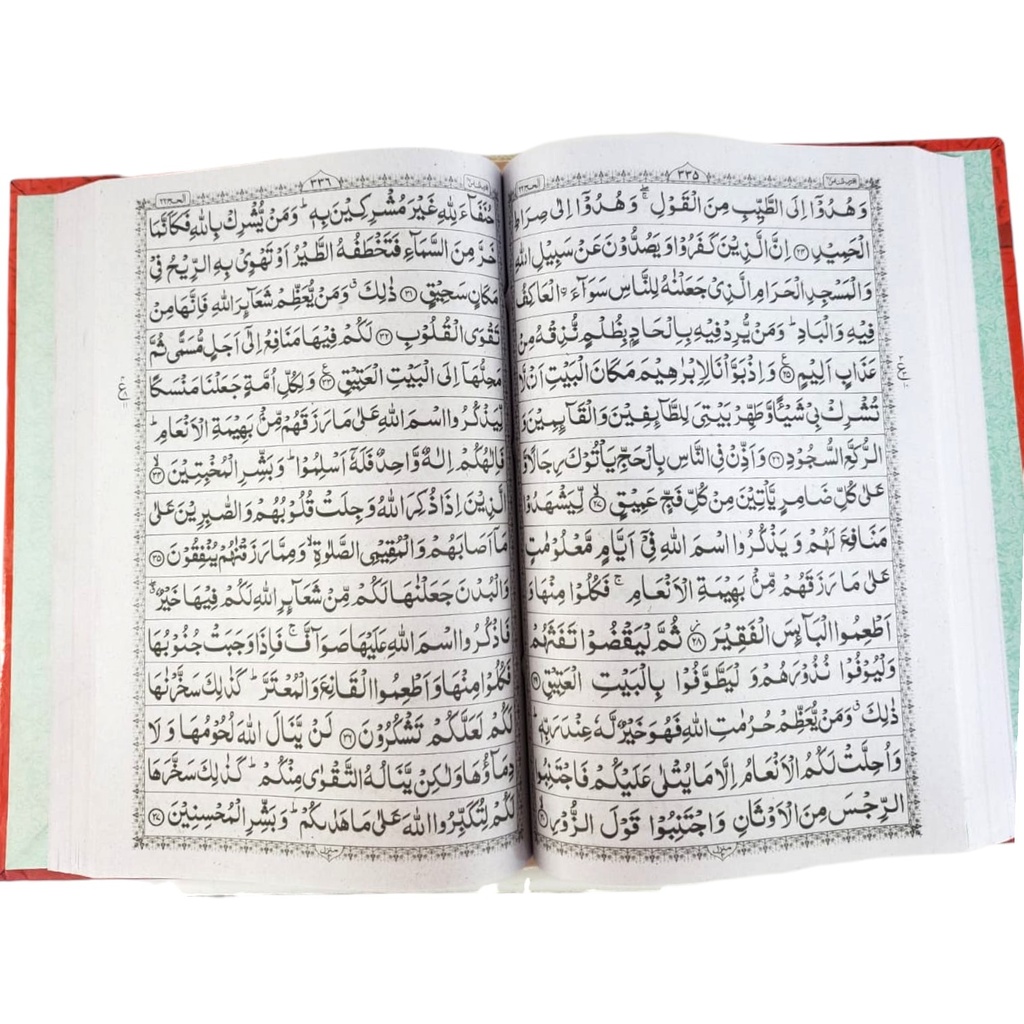 الحج ٢٢
٣٣٥
وَهُدُوْۤا اِلَى الطَّيِّبِ مِنَ الْقَوْلِ ۖۚ وَهُدُوْۤا اِلٰى صِرَاطِ
الْحَمِيْدِ ﴿۲۴﴾ اِنَّ الَّذِيْنَ كَفَرُوْا وَيَصُدُّوْنَ عَنْ سَبِيْلِ اللّٰهِ
وَالْمَسْجِدِ الْحَرَامِ الَّذِىْ جَعَلْنٰهُ لِلنَّاسِ سَوَآءَ ۨالْعَاكِفُ
فِيْهِ وَالْبَادِ ؕ وَمَنْ يُّرِدْ فِيْهِ بِاِلْحَادٍۢ بِظُلْمٍ نُّذِقْهُ مِنْ
عَذَابٍ اَلِيْمٍ ﴿۲۵﴾ۧ وَاِذْ بَوَّاْنَا لِاِبْرٰهِيْمَ مَكَانَ الْبَيْتِ اَنْ لَّا
تُشْرِكْ بِىْ شَيْـًٔا وَّطَهِّرْ بَيْتِىَ لِلطَّآئِفِيْنَ وَالْقَآئِمِيْنَ وَ
الرُّكَّعِ السُّجُوْدِ ﴿۲۶﴾ وَاَذِّنْ فِى النَّاسِ بِالْحَجِّ يَاْتُوْكَ رِجَالًا وَّ
عَلٰى كُلِّ ضَامِرٍ يَّاْتِيْنَ مِنْ كُلِّ فَجٍّ عَمِيْقٍ ﴿۲۷﴾ۙ لِّيَشْهَدُوْا
مَنَافِعَ لَهُمْ وَيَذْكُرُوا اسْمَ اللّٰهِ فِىْۤ اَيَّامٍ مَّعْلُوْمٰتٍ
عَلٰى مَا رَزَقَهُمْ مِّنْۢ بَهِيْمَةِ الْاَنْعَامِ ۚ فَكُلُوْا مِنْهَا وَ
اَطْعِمُوا الْبَآئِسَ الْفَقِيْرَ ﴿۲۸﴾ ثُمَّ لْيَقْضُوْا تَفَثَهُمْ
وَلْيُوْفُوْا نُذُوْرَهُمْ وَلْيَطَّوَّفُوْا بِالْبَيْتِ الْعَتِيْقِ ﴿۲۹﴾
ذٰلِكَ ۗ وَمَنْ يُّعَظِّمْ حُرُمٰتِ اللّٰهِ فَهُوَ خَيْرٌ لَّهٗ عِنْدَ رَبِّهٖ ؕ
وَاُحِلَّتْ لَكُمُ الْاَنْعَامُ اِلَّا مَا يُتْلٰى عَلَيْكُمْ فَاجْتَنِبُوا
الرِّجْسَ مِنَ الْاَوْثَانِ وَاجْتَنِبُوْا قَوْلَ الزُّوْرِ ﴿۳۰﴾ۙ
الحج ٢٢
٣٣٦
حُنَفَآءَ لِلّٰهِ غَيْرَ مُشْرِكِيْنَ بِهٖ ؕ وَمَنْ يُّشْرِكْ بِاللّٰهِ فَكَاَنَّمَا
خَرَّ مِنَ السَّمَآءِ فَتَخْطَفُهُ الطَّيْرُ اَوْ تَهْوِىْ بِهِ الرِّيْحُ فِىْ
مَكَانٍ سَحِيْقٍ ﴿۳۱﴾ ذٰلِكَ ۗ وَمَنْ يُّعَظِّمْ شَعَآئِرَ اللّٰهِ فَاِنَّهَا مِنْ
تَقْوَى الْقُلُوْبِ ﴿۳۲﴾ لَكُمْ فِيْهَا مَنَافِعُ اِلٰۤى اَجَلٍ مُّسَمًّى ثُمَّ
مَحِلُّهَاۤ اِلَى الْبَيْتِ الْعَتِيْقِ ﴿۳۳﴾ۧ وَلِكُلِّ اُمَّةٍ جَعَلْنَا مَنْسَكًا
لِّيَذْكُرُوا اسْمَ اللّٰهِ عَلٰى مَا رَزَقَهُمْ مِّنْۢ بَهِيْمَةِ الْاَنْعَامِ ؕ
فَاِلٰهُكُمْ اِلٰهٌ وَّاحِدٌ فَلَهٗۤ اَسْلِمُوْا ؕ وَبَشِّرِ الْمُخْبِتِيْنَ ﴿۳۴﴾ۙ
الَّذِيْنَ اِذَا ذُكِرَ اللّٰهُ وَجِلَتْ قُلُوْبُهُمْ وَالصّٰبِرِيْنَ عَلٰى
مَاۤ اَصَابَهُمْ وَالْمُقِيْمِى الصَّلٰوةِ ۙ وَمِمَّا رَزَقْنٰهُمْ يُنْفِقُوْنَ ﴿۳۵﴾
وَالْبُدْنَ جَعَلْنٰهَا لَكُمْ مِّنْ شَعَآئِرِ اللّٰهِ لَكُمْ فِيْهَا خَيْرٌ ۖ
فَاذْكُرُوا اسْمَ اللّٰهِ عَلَيْهَا صَوَآفَّ ۚ فَاِذَا وَجَبَتْ جُنُوْبُهَا
فَكُلُوْا مِنْهَا وَاَطْعِمُوا الْقَانِعَ وَالْمُعْتَرَّ ؕ كَذٰلِكَ سَخَّرْنٰهَا
لَكُمْ لَعَلَّكُمْ تَشْكُرُوْنَ ﴿۳۶﴾ لَنْ يَّنَالَ اللّٰهَ لُحُوْمُهَا وَلَا
دِمَآؤُهَا وَلٰكِنْ يَّنَالُهُ التَّقْوٰى مِنْكُمْ ؕ كَذٰلِكَ سَخَّرَهَا
لَكُمْ لِتُكَبِّرُوا اللّٰهَ عَلٰى مَا هَدٰٮكُمْ ؕ وَبَشِّرِ الْمُحْسِنِيْنَ ﴿۳۷﴾